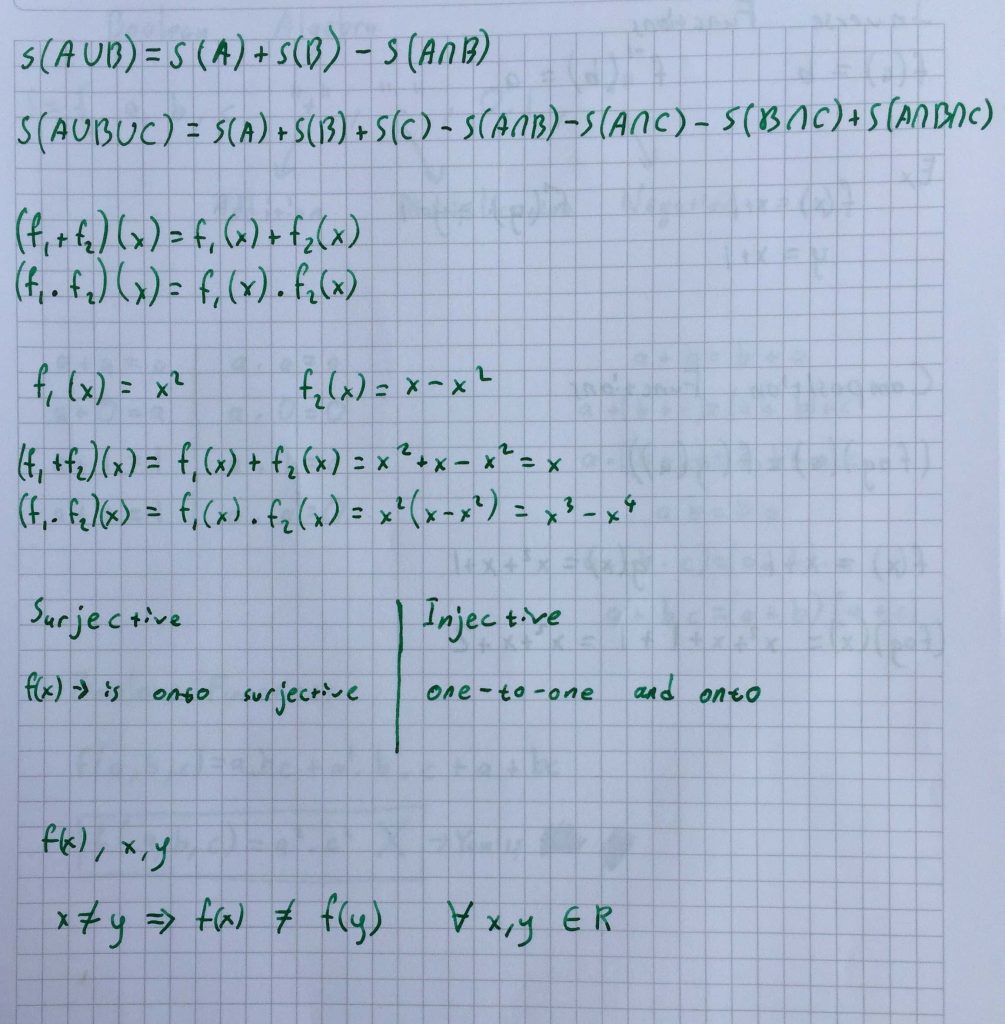 S(A∪B) = S(A) + S(B) - S(A∩B)
S(A∪B∪C) = S(A) + S(B) + S(C) - S(A∩B) - S(A∩C) - S(B∩C) + S(A∩B∩C)
(f₁ + f₂)(x) = f₁(x) + f₂(x)
(f₁ . f₂)(x) = f₁(x) . f₂(x)
f₁(x) = x² f₂(x) = x - x²
(f₁ + f₂)(x) = f₁(x) + f₂(x) = x² + x - x² = x
(f₁ . f₂)(x) = f₁(x) . f₂(x) = x²(x - x²) = x³ - x⁴
Surjective
f(x) → is onto surjective
Injective
one-to-one and onto
f(x), x,y
x ≠ y ⇒ f(x) ≠ f(y) ∀ x,y ∈ R